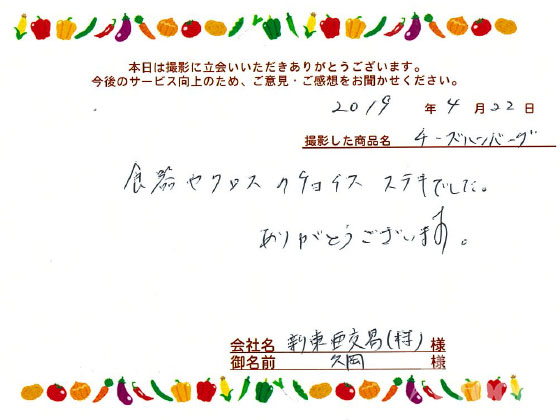 本日は撮影に立会いいただきありがとうございます。
今後のサービス向上のため、ご意見・ご感想をお聞かせください。
2019 年 4 月 22 日
撮影した商品名 チーズハンバーグ
食器やクロスのチョイス ステキでした。
ありがとうございます。
会社名 新東亜交易(株) 様
御名前 久岡 様